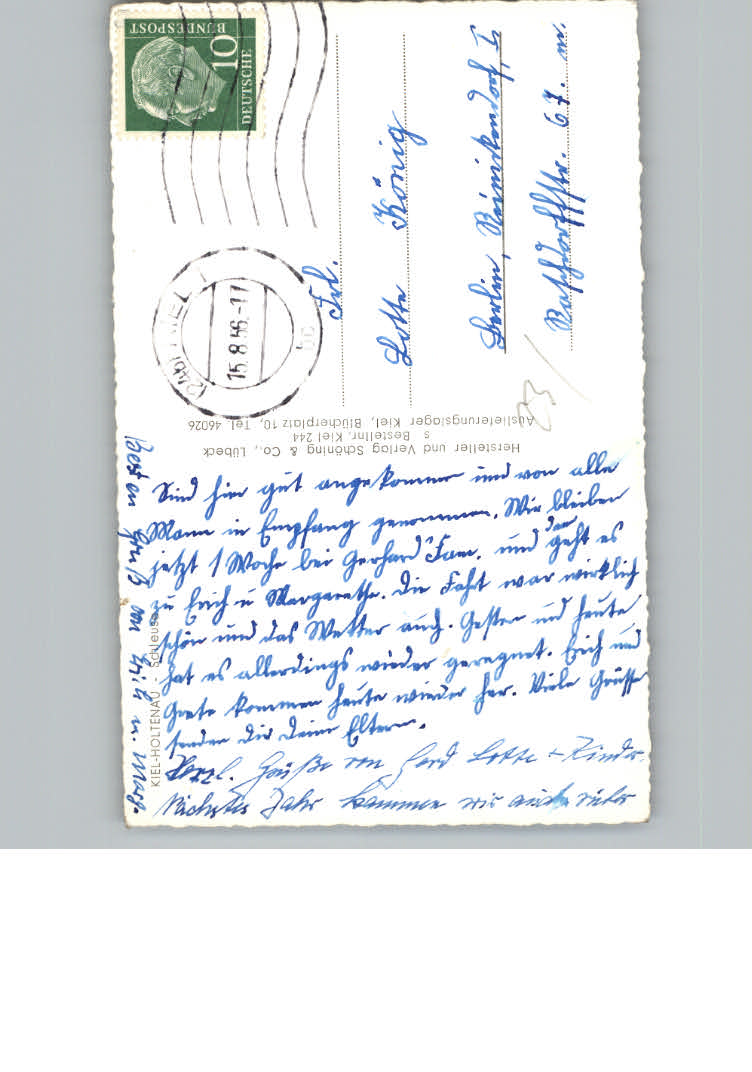 DEUTSCHE
BUNDESPOST
10
(24b) KIEL 1
15.8.56.-17
Frl.
Lotte König
Berlin, Reinickendorf, I
Raschdorffstr. 67. m.
Hersteller und Verlag Schöning & Co., Lübeck
s Bestellnr. Kiel 244
Auslieferungslager Kiel, Blücherplatz 10, Tel. 46026
KIEL-HOLTENAU. Schleuse
Sind hier gut angekommen und von alle
Mann in Empfang genommen. Wir bleiben
jetzt 1 Woche bei Gerhard Fam. und dan geht es
zu Erich u Margarethe. Die Fahrt war wirklich
schön und das Wetter auch. Gestern und heute
hat es allerdings wieder geregnet. Erich und
Grete kommen heute wieder her. Viele Grüsse
senden Dir Deine Eltern.
Herzl. Grüße von Gerd Lotte + Kinder.
Nächstes Jahr kommen wir auch wieder
Besten Gruß von Erich u. Marg.